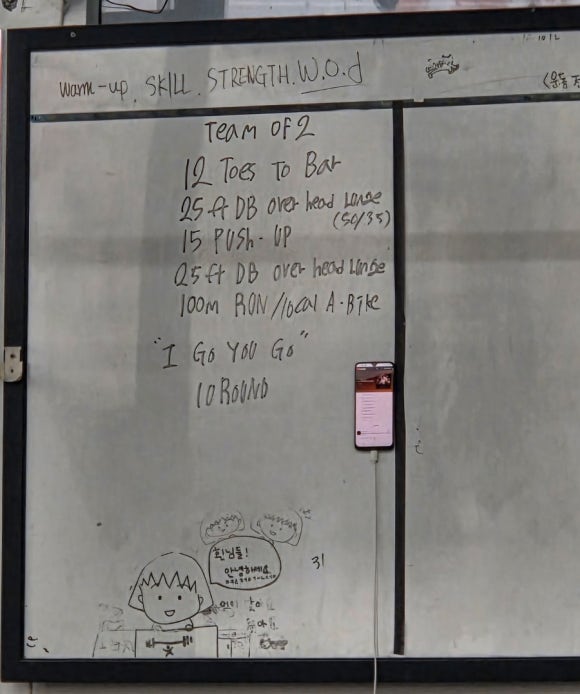 Warm-up. SKILL. STRENGTH. W.O.d
Team of 2
12 Toes To Bar
25ft DB over head Lunge
(50/35)
15 PUSH-UP
25ft DB over head Lunge
100m RUN/10cal A-Bike
"I Go You Go"
10 ROUND
회원님들!
안녕하세요
31